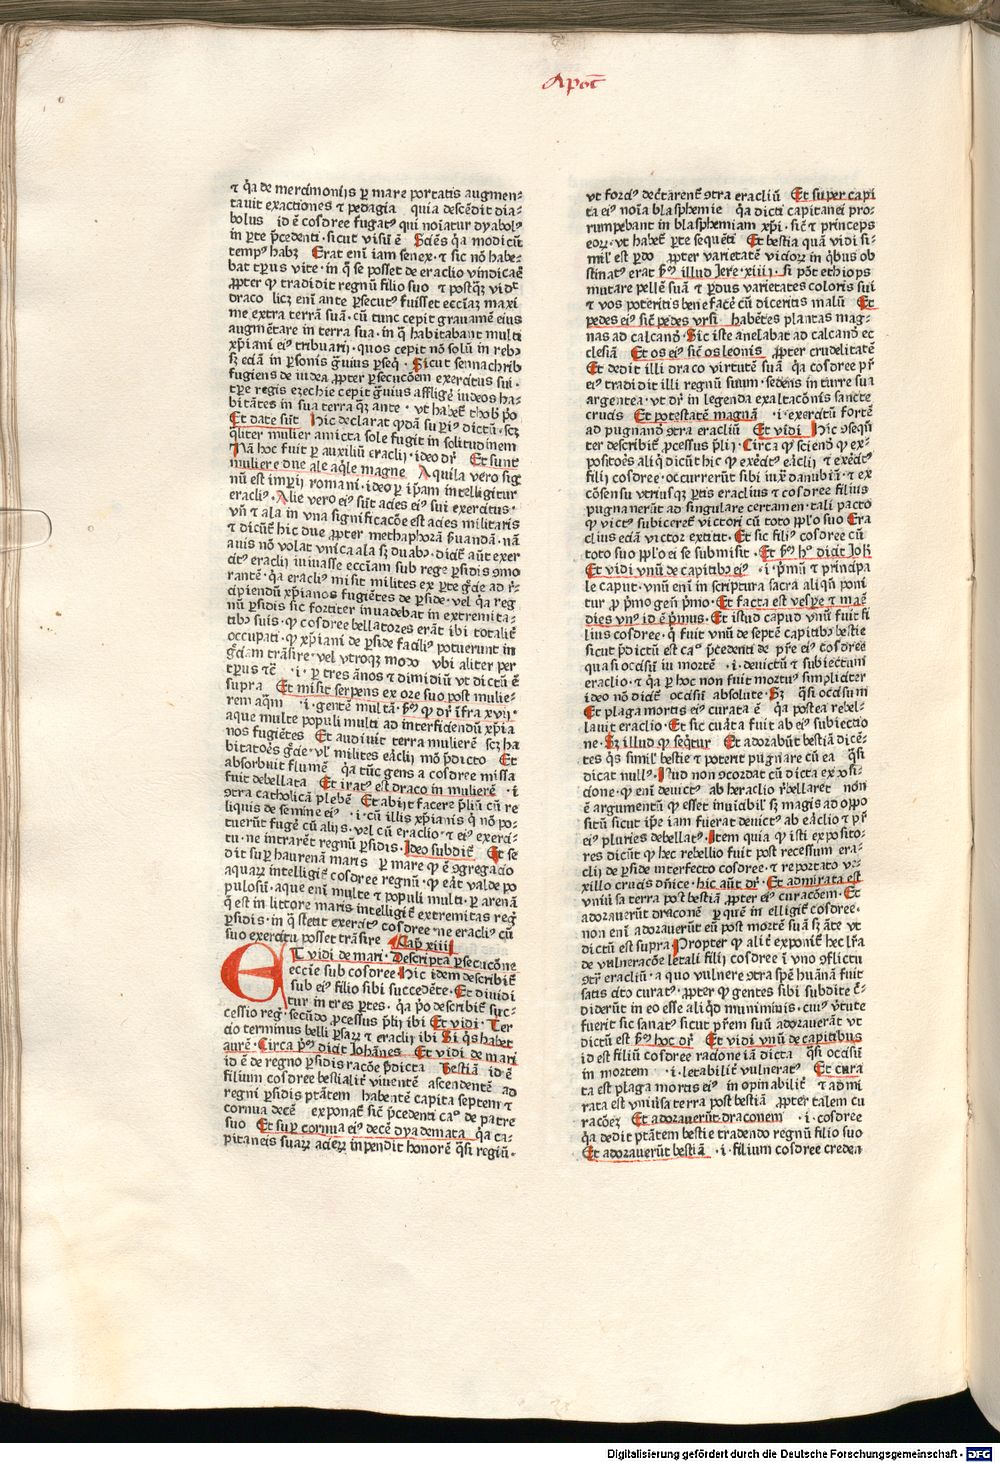 Apoc̄
⁊ q̄a de mercimoniis ꝑ mare portatis augmen-
tauit exactiones ⁊ pedagia quia descēdit dia-
bolus id ē cosdree fugat⁹ qui noīatur dyabol⁹
in ꝑte p̄cedenti · sicut visū ē Sciēs q̄a modicū
temp⁹ habꝫ Erat enī iam senex · ⁊ sic nō habe-
bat tꝑus vite · in q̄ se posset de eraclio vindicaē
ꝓpter qꝰ tradidit regnū filio suo ⁊ postqꝫ vidt̄
draco licꝫ enī ante ꝑsecut⁹ fuisset eccīaꝫ maxi
me extra terrā suā · cū tunc cepit grauamē eius
augmētare in terra sua · in q̄ habitabant multi
xp̄iani ei⁹ tributarij · quos cepit nō solū in rebꝫ
sꝫ eciā in ꝑsonis ḡuius ꝑseq̄ · Sicut sennachrib
fugiens de iudea ꝓpter ꝑsecucōem exercitus sui ·
tꝑe regis ezechie cepit ḡuius affligē iudeos ha-
bitātes in sua terra qꝫ ante · vt habet̄ thob p̄o
Et date sūt Hic declarat qd̄a suꝑi⁹ dictū · scꝫ
qliter mulier amicta sole fugit in solitudinem
Nā hoc fuit ꝑ auxiliū eraclij · ideo dr̄ Et sunt
muliere due ale aq̄le magne Aquila vero sig
nū est imp̄ij romani · ideo ꝑ ip̄am intelligitur
eracli⁹ · Alie vero ei⁹ sūt acies ei⁹ sui exercitus ·
vn̄ ⁊ ala in vna significacōe est acies militaris
⁊ dicūt hic due ꝓpter methaphorā p̄uandā · nā
auis nō volat vnica ala sꝫ duabꝫ · dicit̄ aūt exer
cit⁹ eraclij iuuasse eccīam sub rege ꝑsidis ɔmo
rantē · q̄a eracli⁹ misit milites ex ꝑte ḡcie ad r̄-
cipiendū xp̄ianos fugiētes de ꝑside · vel q̄a reg
nū ꝑsidis sic fortiter inuadebat in extremita-
tibꝫ suis · qꝰ cosdree bellatores erāt ibi totalit̄
occupati · qꝰ xp̄iani de ꝑside facili⁹ potuerunt in
ḡciam trāsire · vel vtroqꝫ modo vbi aliter per
tꝑus tē · i · ꝑ tres ānos ⁊ dimidiū vt dictū ē
supra Et misit serpens ex ore suo post mulie-
rem aq̄m · i · gentē multā · p̄s qꝰ dr̄ īfra xvij ·
aque multe populi multi ad interficiendū xp̄ia
nos fugiētes Et adiuuit terra mulierē scꝫ ha
bitatoēs ḡcie · vl̄ milites eaclij mō p̄dicto Et
absorbuit flumē q̄a tūc gens a cosdree missa
fuit debellata Et irat⁹ est draco in mulierē · i
ɔtra catholicā plebē Et abijt facere p̄liū cū re
liquis de semine ei⁹ · i · cū illis xp̄ianis q̄ nō po-
tuerūt fugē cū alijs · vel cū eraclio · ⁊ ei⁹ exerci-
tu · ne intrarēt regnū ꝑsidis · Ideo subdit̄ Et se
dit suꝑ haurenā maris ꝑ mare qꝰ ē ɔgregacio
aquaꝝ intelligit̄ cosdree regnū · qꝰ eāt valde po
pulosū · aque enī multe ⁊ populi multi · ꝑ arenā
q̄ est in littore maris intelligit̄ extremitas reḡ
ꝑsidis · in q̄ stetit exercit⁹ cosdree · ne eracli⁹ cū
suo exercitu posset trāsire Cap̄ xiii
ET vidi de mari · Descripta ꝑsecucōne
eccīe sub cosdree Hic idem describit̄
sub ei⁹ filio sibi succedēte · Et diuidi
tur in tres ꝑtes · q̄a p̄o describit̄ suc-
cessio reḡ · secūdo ꝓcessus p̄lij ibi Et vidi · Ter
cio terminus belli ꝑsaꝝ ⁊ eraclij ibi Si q̄s habet
aurē · Circa p̄m dicit Johānes Et vidi de mari
id ē de regno ꝑsidis racōe p̄dicta Bestiā id ē
filium cosdree bestialit̄ viuentē ascendentē ad
regni ꝑsidis ptātem habentē capita septem ⁊
cornua decē exponat̄ sic̄ p̄cedenti caº de patre
suo Et suꝑ cornua ei⁹ decē dyademata q̄a ca-
pitaneis suaꝝ acieꝝ inpendit honorē q̄si regiū ·
vt forci⁹ dec̄tarent̄ ɔtra eracliū Et super capi
ta ei⁹ noīa blasphemie q̄a dicti capitanei pro-
rumpebant in blasphemiam xp̄i · sic̄ ⁊ princeps
eoꝝ · vt habet̄ ꝑte sequēti Et bestia quā vidi si-
mil⁹ est ꝑdo ꝓpter varietatē vicioꝝ in q̄bus ob
stinat⁹ erat p̄s illud Jere · xiii · Si pōt ethiops
mutare pellē suā ⁊ ꝑdus varietates coloris sui
⁊ vos poteritis bene facē cū diceritis malū Et
pedes ei⁹ sic̄ pedes vrsi habētes plantas mag-
nas ad calcandꝫ · Sic iste anelabat ad calcandꝫ ec
clesiā Et os ei⁹ sic̄ os leonis ꝓpter crudelitatē
Et dedit illi draco virtutē suā q̄a cosdree pr̄
ei⁹ tradidit illi regnū suum · sedens in turre sua
argentea · vt dr̄ in legenda exaltacōnis sancte
crucis Et potestatē magnā · i · exercitū fortē
ad pugnandꝫ ɔtra eracliū Et vidi Hic ɔseqn̄
ter describit̄ ꝓcessus p̄lij · Circa qꝰ sciendꝫ qꝰ ex-
positoēs aliq̄ dicūt hic qꝰ exēcit⁹ eāclij ⁊ exēcit̄
filij cosdree · occurrerūt sibi iuxͣ danubiā · ⁊ ex
cōsensu vtriusqꝫ ꝑtis eraclius ⁊ cosdree filius
pugnauerūt ad singulare certamen · tali pacto
qꝰ vict⁹ subiceret̄ victori cū toto ppl̄o suo Era
clius eciā victor extitit · Et sic fili⁹ cosdree cū
toto suo ppl̄o ei se submisit · Et p̄s hͦ dicit Joh̄
Et vidi vnū de capitibꝫ ei⁹ · i · p̄mū ⁊ principa
le caput · vnū enī in scriptura sacra aliqn̄ poni
tur ꝓ p̄mo gen̄ p̄mo · Et facta est vesꝑe ⁊ maē
dies vn⁹ id ē p̄mus · Et istud capud vnū fuit fi
lius cosdree · q̄ fuit vnū de septē capitibꝫ bestie
sicut p̄dictū est caº p̄cedenti de pr̄e ei⁹ cosdree
quasi occisū iu mortē · i · deuictū ⁊ subiectum
eraclio · ⁊ q̄a ꝑ hoc non fuit mortu⁹ simpliciter
ideo nō dicit̄ occisū absolute · Sꝫ q̄si occisum
Et plaga mortis ei⁹ curata ē q̄a postea rebel-
lauit eraclio · Et sic cuāta fuit ab ei⁹ subiectio
ne · Sꝫ illud qꝰ seqt̄ur Et adorabūt bestiā dicē-
tes q̄s simil⁹ bestie ⁊ poterit pugnare cū ea q̄si
dicat null⁹ · Istud non ɔcordat cū dicta exposi-
cione · qꝰ enī deuict⁹ ab heraclio r̄bellaret̄ non
ē argumentū qꝰ esset inuicibil⁹ sꝫ magis ad oppo
sitū sicut ip̄e iam fuerat deuict⁹ ab eāclio ⁊ pr̄
ei⁹ pluries debellat⁹ · Item quia qꝰ isti exposito-
res dicūt qꝰ hec rebellio fuit post recessum era-
clij de ꝑside interfecto cosdree · ⁊ reportato ve-
xillo crucis dn̄ice · hic aūt dr̄ · Et admirata est
vniūsa terra post bestiā ꝓpter ei⁹ curacōem · Et
adorauerūt draconē ꝑ quē in elligit̄ cosdree ·
non enī adorauerūt eū post mortē suā sꝫ āte vt
dictū est supra Propter qꝰ alit̄ exponit̄ hec lr̄a
de vulneracōe letali filij cosdree ī vno ɔflictu
ɔtͣ eracliū · a quo vulnere ɔtra spē huānā fuit
satis cito curat⁹ ꝓpter qꝰ gentes sibi subdite c̄-
diderūt in eo esse aliqd̄ numininis · cui⁹ v̄tute
fuerit sic sanat⁹ sicut pr̄em suū adorauerāt vt
dictū est p̄s hoc dr̄ Et vidi vnū de capitibus
id est filiū cosdree racione iā dicta q̄si occisū
in mortem · i · letabilit̄ vulnerat⁹ Et cura
ta est plaga mortis ei⁹ in opinabilit̄ ⁊ admi
rata est vniūsa terra post bestiā ꝓpter talem cu
racōeꝫ Et adorauerūt draconem · i · cosdree
q̄a dedit ptātem bestie tradendo regnū filio suo
Et adorauerūt bestiā · i · filium cosdree creden
Digitalisierung gefördert durch die Deutsche Forschungsgemeinschaft - DFG